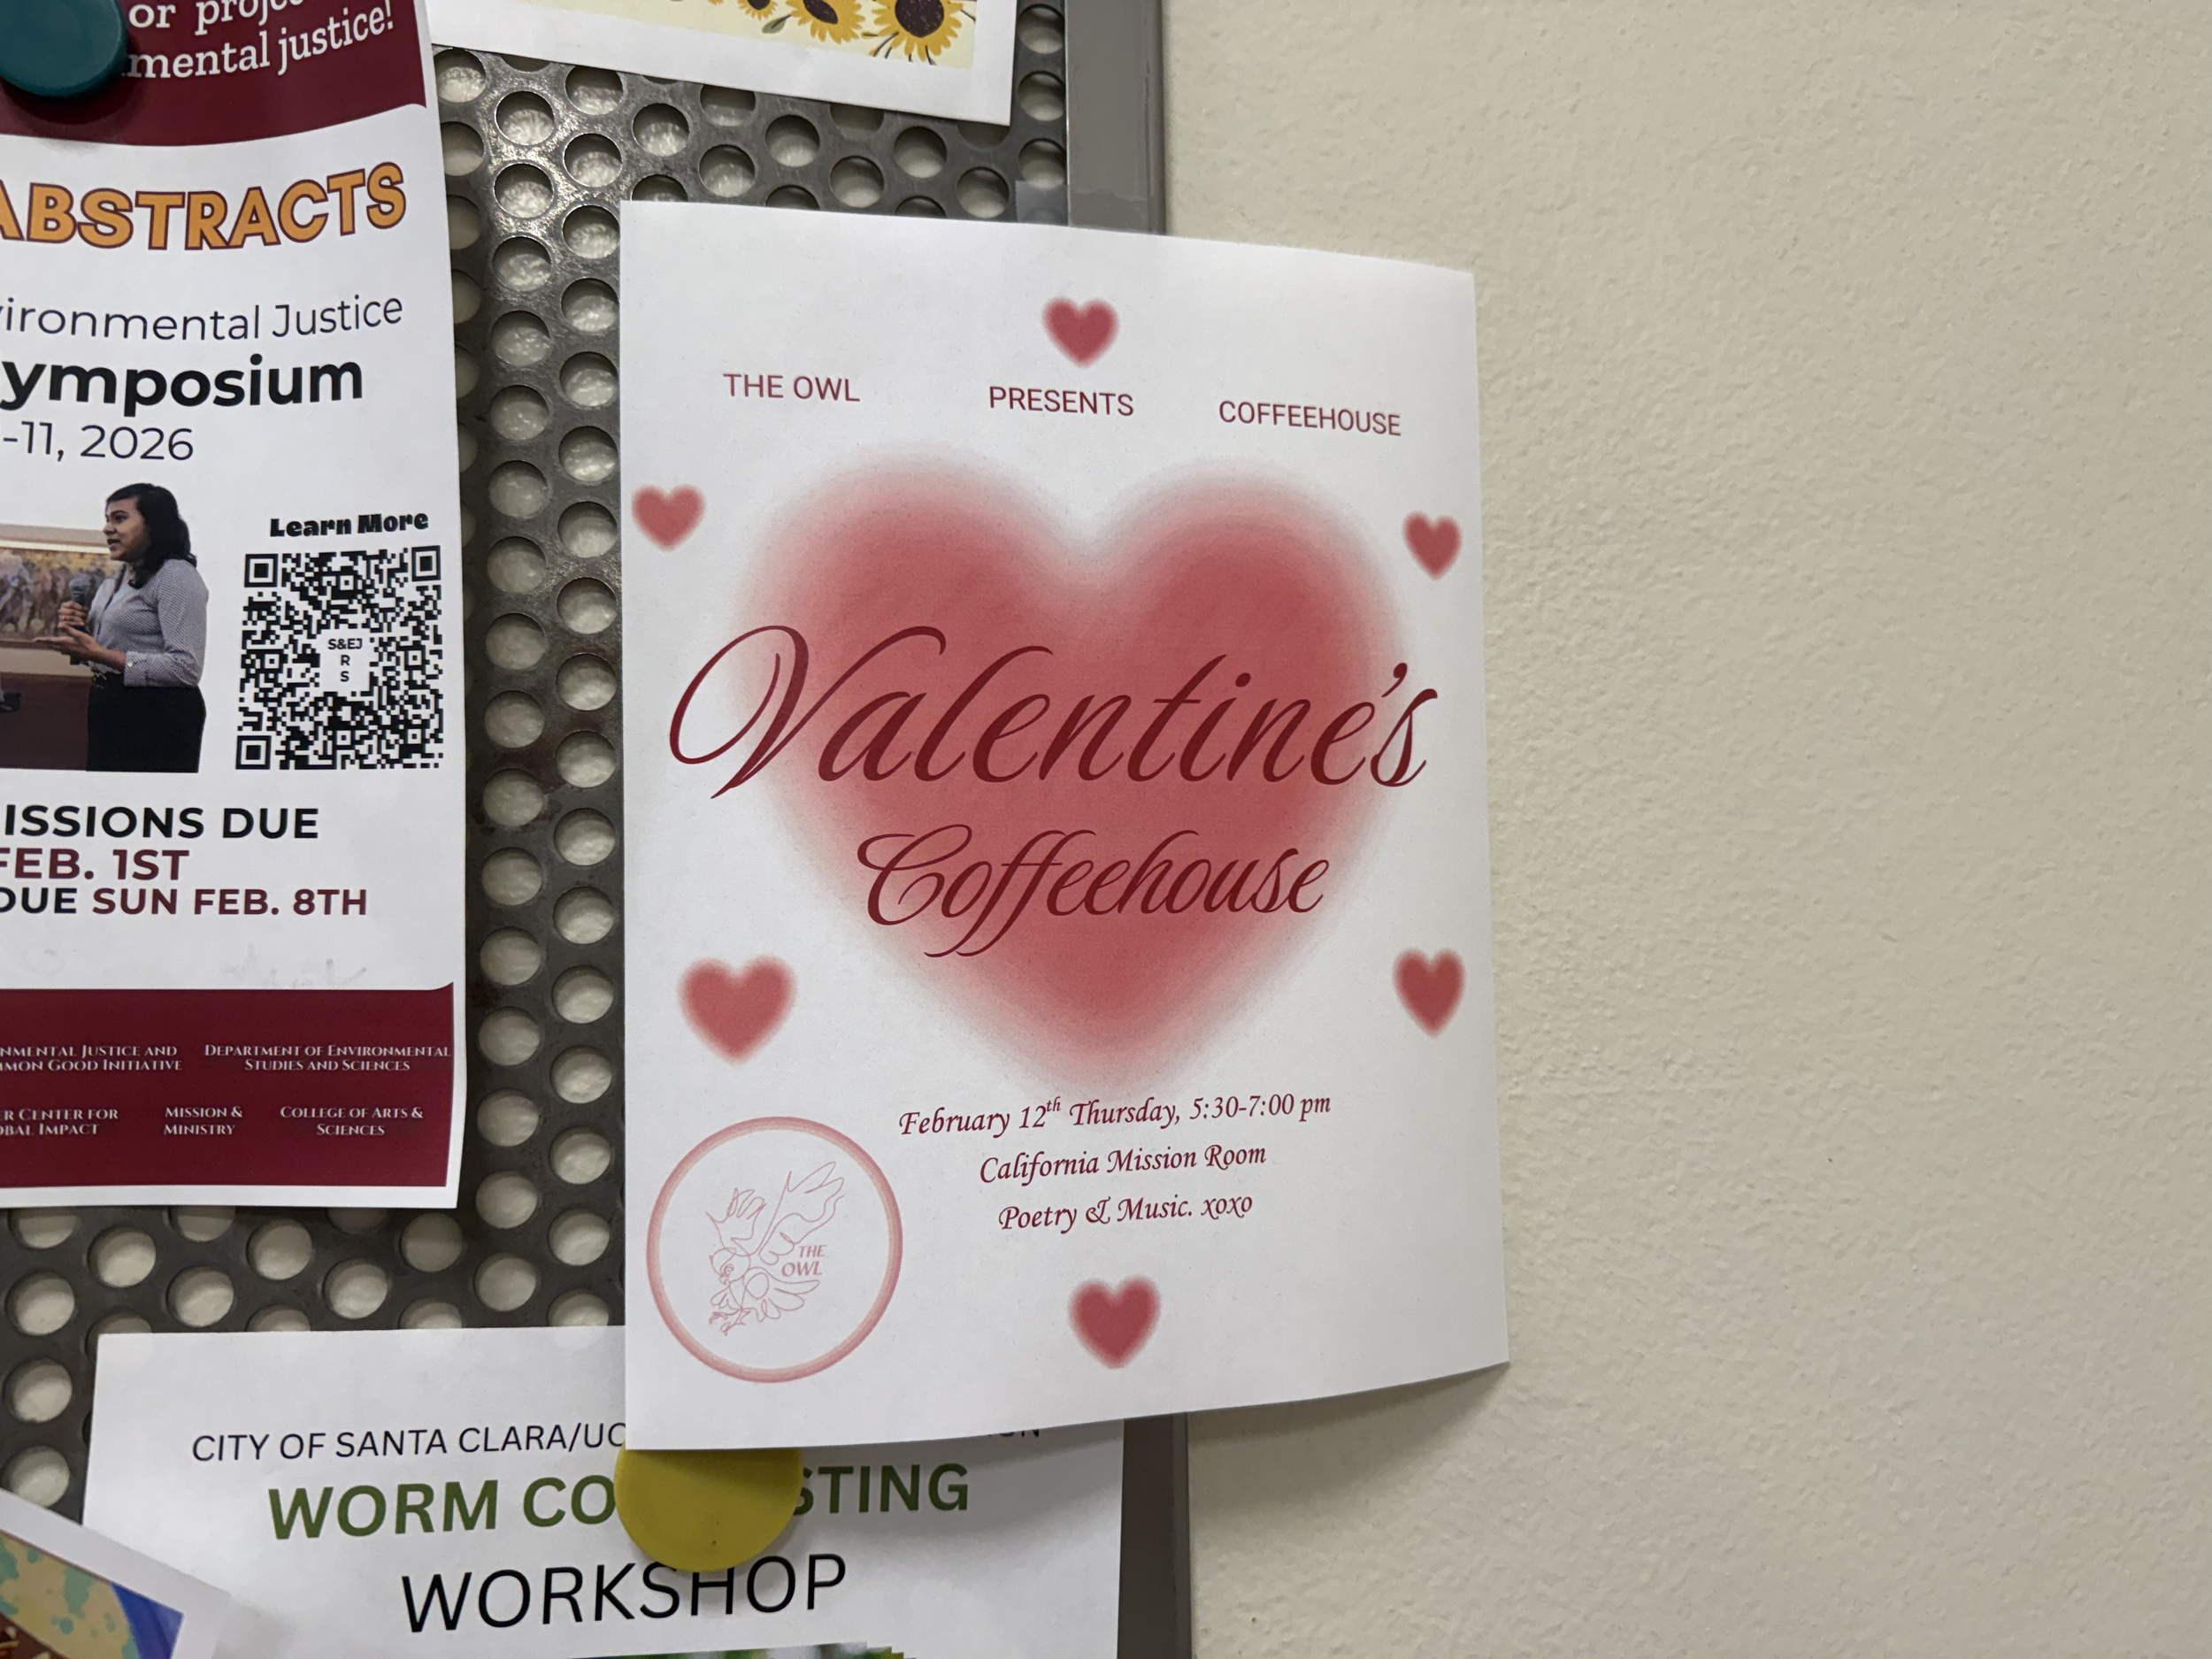 or
mental justice!
ABSTRACTS
Environmental Justice
Symposium
-11, 2026
Learn More
S&EJ
R
S
DUE
FEB. 1ST
DUE SUN FEB. 8TH
JUSTICE AND
GOOD INITIATIVE
DEPARTMENT OF ENVIRONMENTAL
STUDIES AND SCIENCES
CENTER FOR
IMPACT
MISSION &
MINISTRY
COLLEGE OF ARTS &
SCIENCES
THE OWL PRESENTS COFFEEHOUSE
Valentine's
Coffeehouse
February 12th Thursday, 5:30-7:00 pm
California Mission Room
Poetry & Music. xoxo
THE
OWL
CITY OF SANTA CLARA/UC
WORM
WORKSHOP